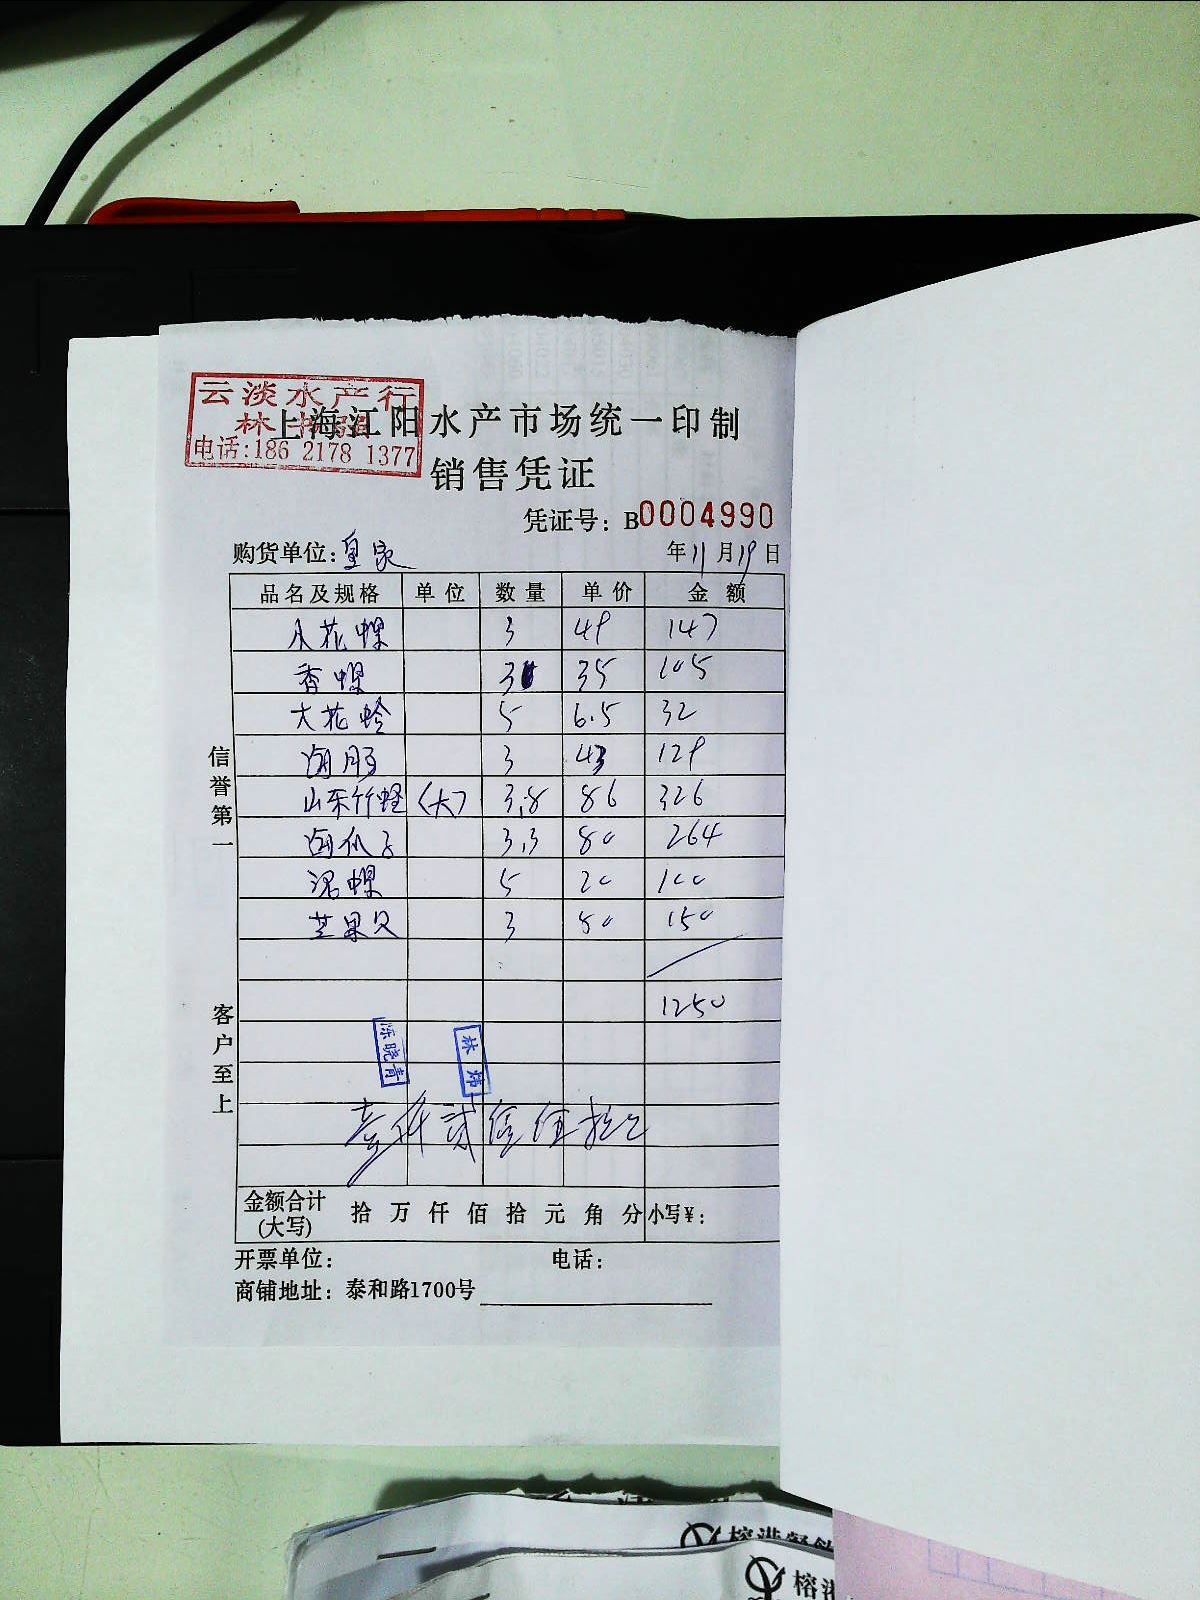 云淡水产行
林书强
电话:186 2178 1377
上海江阳水产市场统一印制
销售凭证
凭证号: B0004990
购货单位: 皇家 年11月19日
品名及规格 单位 数量 单价 金额
小花螺 3 49 147
香螺 3 35 105
大花蛤 5 6.5 32
3 43 129
山东竹蛏 (大) 3.8 86 326
海瓜子 3.3 80 264
泥螺 5 20 100
芒果贝 3 50 150
1250
林炜
壹仟贰佰伍拾元
金额合计 (大写) 拾 万 仟 佰 拾 元 角 分 小写¥:
开票单位: 电话:
商铺地址: 泰和路1700号
信誉第一
客户至上
榕港餐飲
榕港